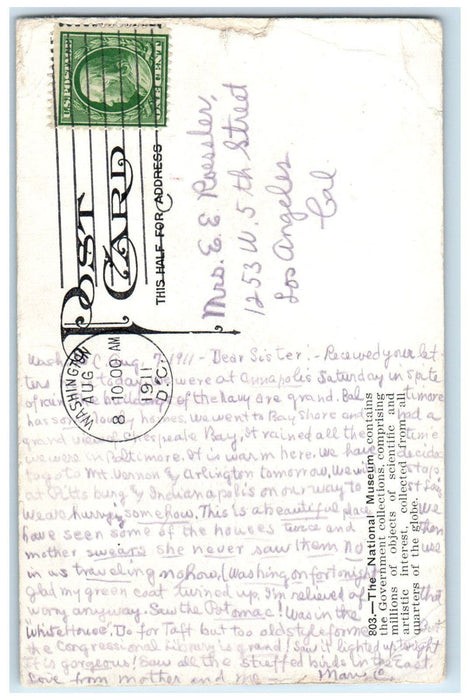 U.S. POSTAGE
ONE CENT
POST CARD
THIS HALF FOR ADDRESS
WASHINGTON
AUG 7
8 10:00 AM
1911
D.C.
Mrs. E. E. Roessler,
1253 W. 5th Street
Los Angeles
Cal
Wash D.C. Aug. 7-1911- Dear Sister:- Received your let-
ters today were at Annapolis Saturday in spite
of rain the buildings of the navy are grand. Bal timore
has so lovely homes, we went to Bay Shore and had a
grand view of Chesapeake Bay, It rained all the time
we were in Baltimore. It is warm here. We have decided
to go to Mt. Vernon & Arlington tomorrow, We stops
at Pittsburg & Indianapolis on our way to St Louis,
We are hurrying somehow. This is a beautiful place we
have seen some of the houses twice and then
mother swears she never saw them no use
in us traveling nohow. (Washing on for tonight
glad my green coat turned up. I'm relieved of that
worry anyway. Saw the Potomac! Was in the
White House, Do for Taft but too old style for me But
the Congressional library is grand! Saw it lighted up tonight
It is gorgeous! Saw all the stuffed birds in the East.
Love from mother and me — Mary C.
803.—The National Museum contains
the Government collections, comprising
millions of objects of scientific and
artistic interest, collected from all
quarters of the globe.